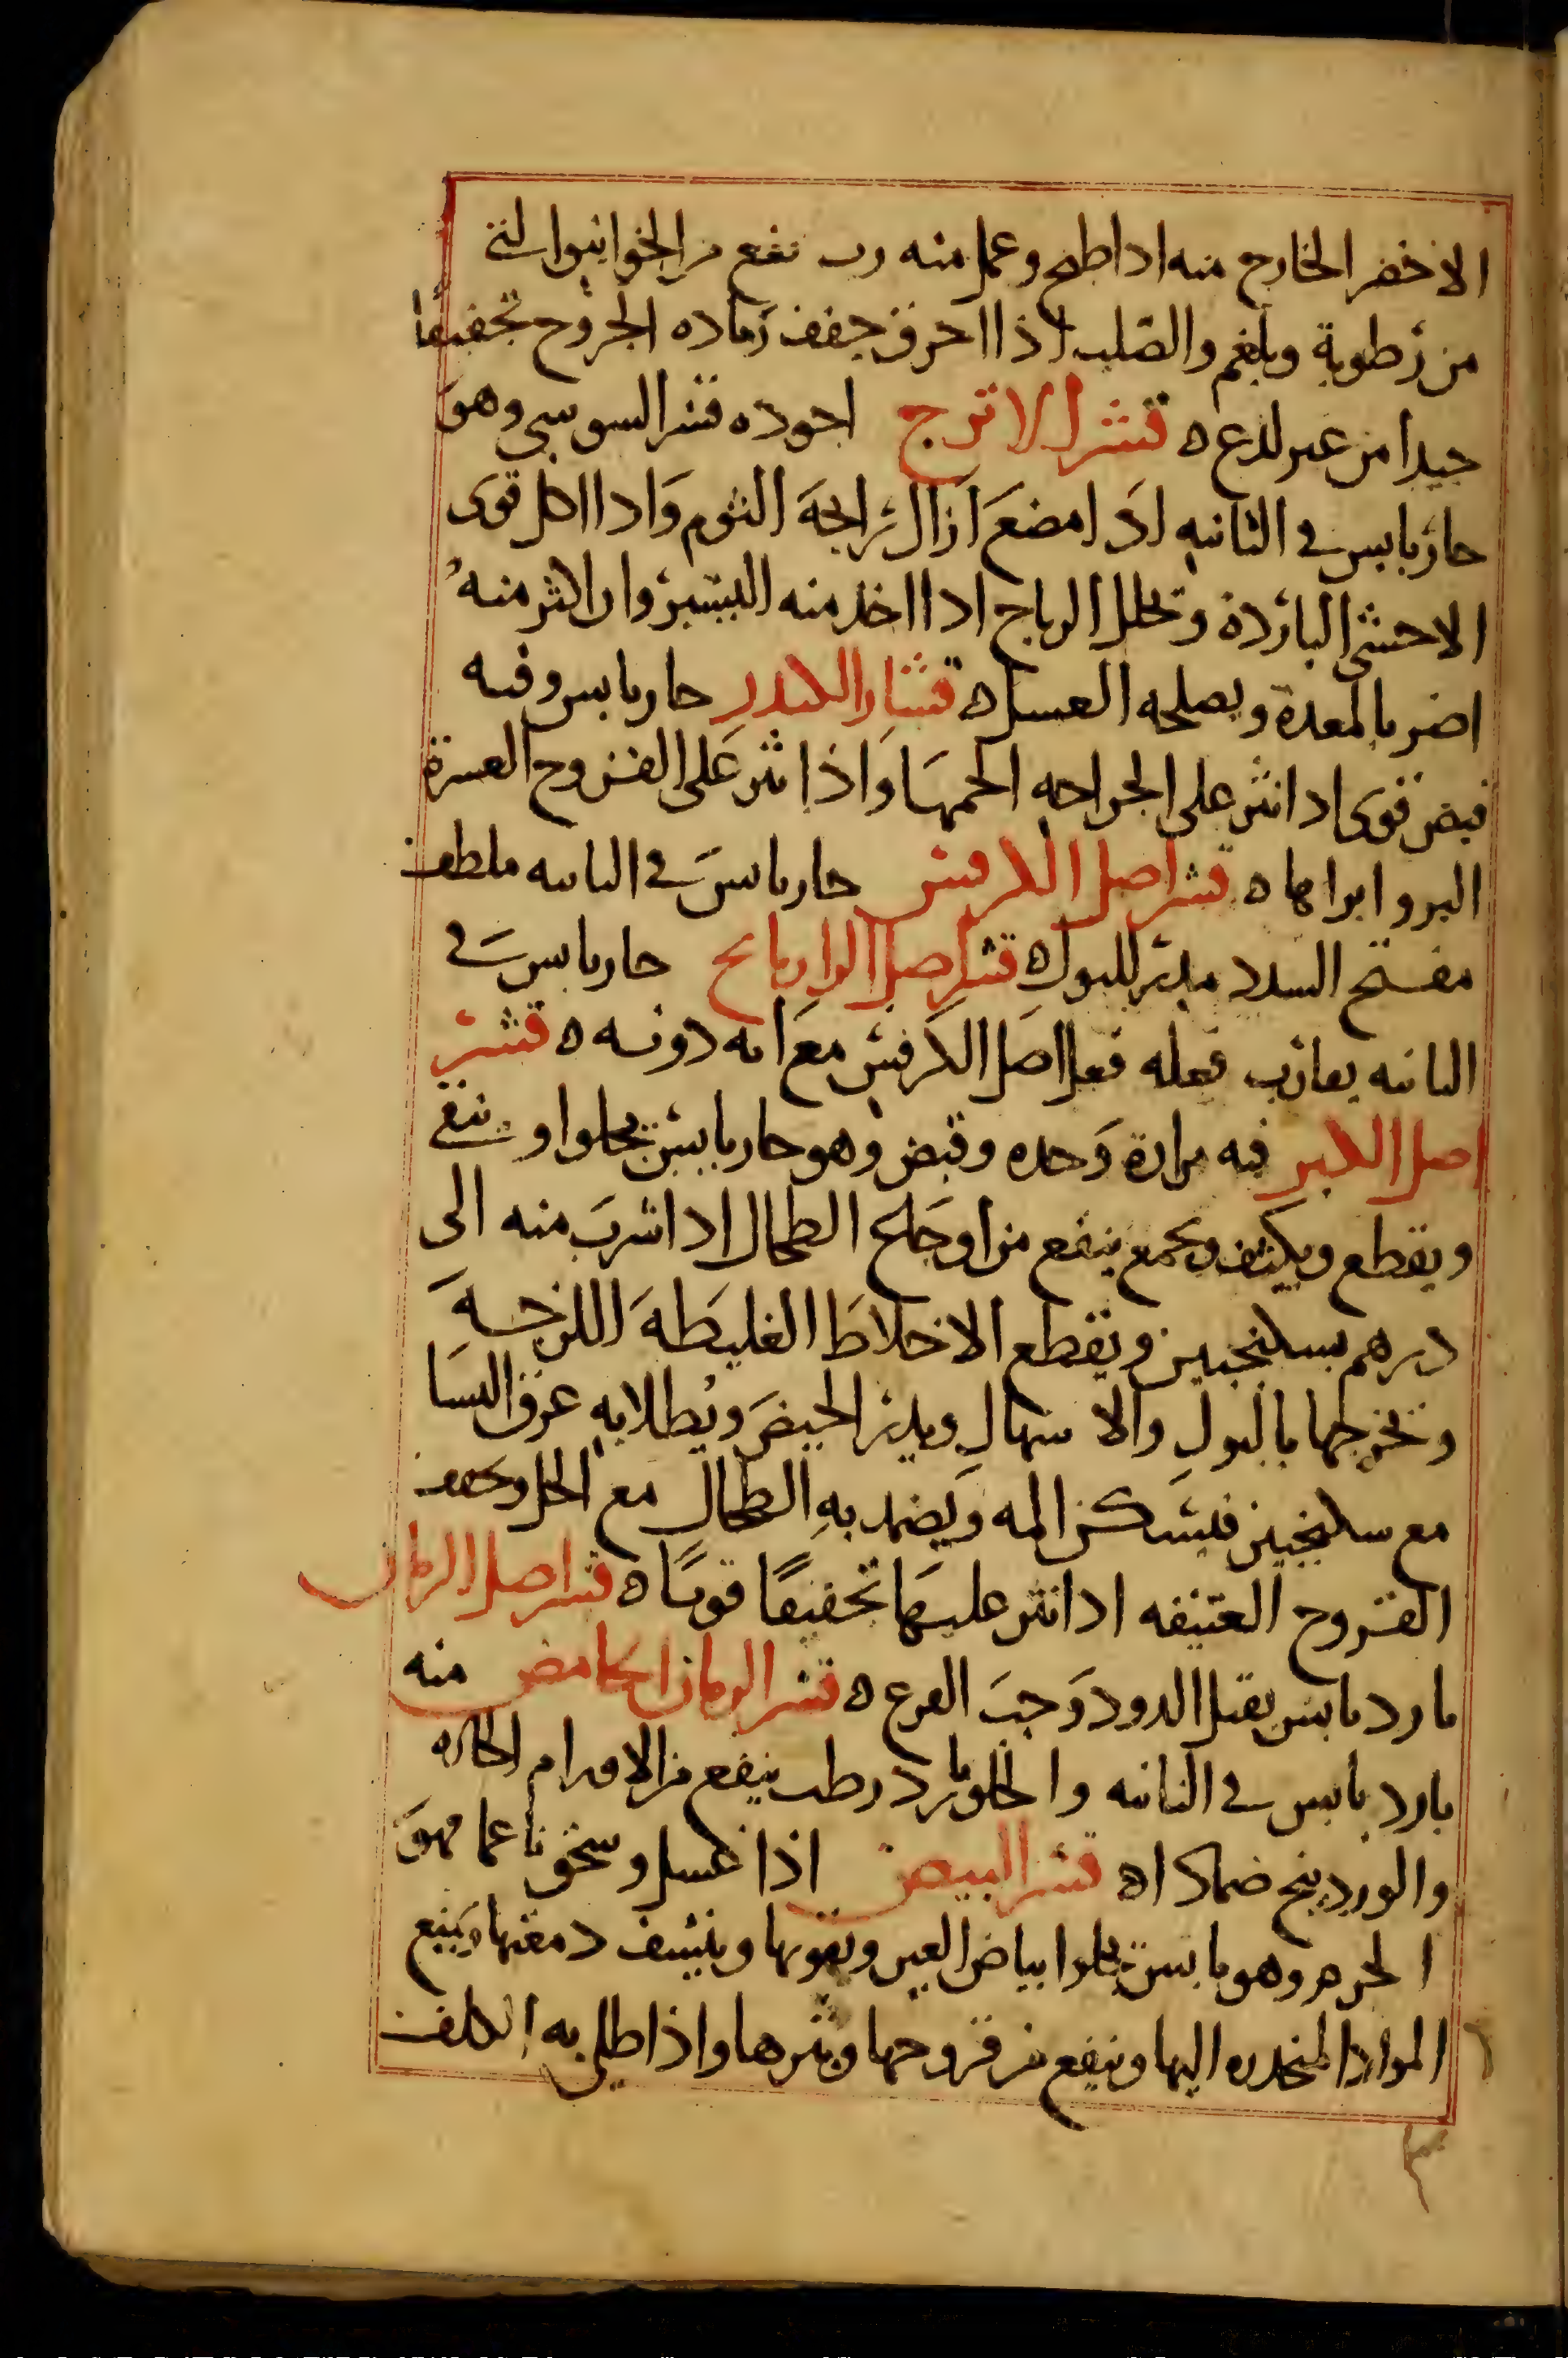 الاخضر الخارج منه اذا طبخ وعمل منه رب نفع من الخوانيق التي
من رطوبة وبلغم والصلب اذا احرق جفف رماده الجروح تجفيفا
جيدا من غير لذع ه قشر الاترج اجوده قشر السوسي وهو
حار يابس في الثانيه اذا مضغ ازال رايحة الثوم واذا اكل قوى
الاحشى الباردة وتحلل الرياح اذا اخذ منه اليسير وان اكثر منه
اضر بالمعدة ويصلحه العسل ه قشار الكندر حار يابس وفيه
قبض قوى اذا نثر على الجراحه الحمها واذا نثر على القروح العسرة
البرو ابراها ه قشر اصل الكرفس حار يابس في الثانيه ملطف
مفتح السدد مدر للبول ه قشر اصل الرازيانج حار يابس في
الثانيه يقارب فعله فعل اصل الكرفس مع انه دونه ه قشر
اصل الكبر فيه مرارة وحده وقبض وهو حار يابس يجلوا و ينقي
ويقطع ويكثف ويجمع ينفع من اوجاع الطحال اذا شرب منه الى
درهم بسكنجبين ويقطع الاخلاط الغليظة اللزجة
وتخرجها بالبول والاسهال ويدر الحيض ويطلا به عرق النسا
مع سكنجبين فيسكن المه ويضمد به الطحال مع الخل ويجفف
القروح العتيقه اذا نثر عليها تجفيفا قويا ه قشر اصل الرمان
بارد يابس يقتل الدود وحب القرع ه قشر الرمان الحامض منه
بارد يابس في الثانيه والحلو بارد رطب ينفع من الاورام الحاره
والوردينج ضمادا ه قشر البيض اذا غسل وسحق ناعما فهو
الحرم وهو يابس يجلوا بياض العين ويقويها وينشف دمعتها ويمنع
المواد المنحدره اليها وينفع من قروحها وبثرها واذا طلي به الكلف